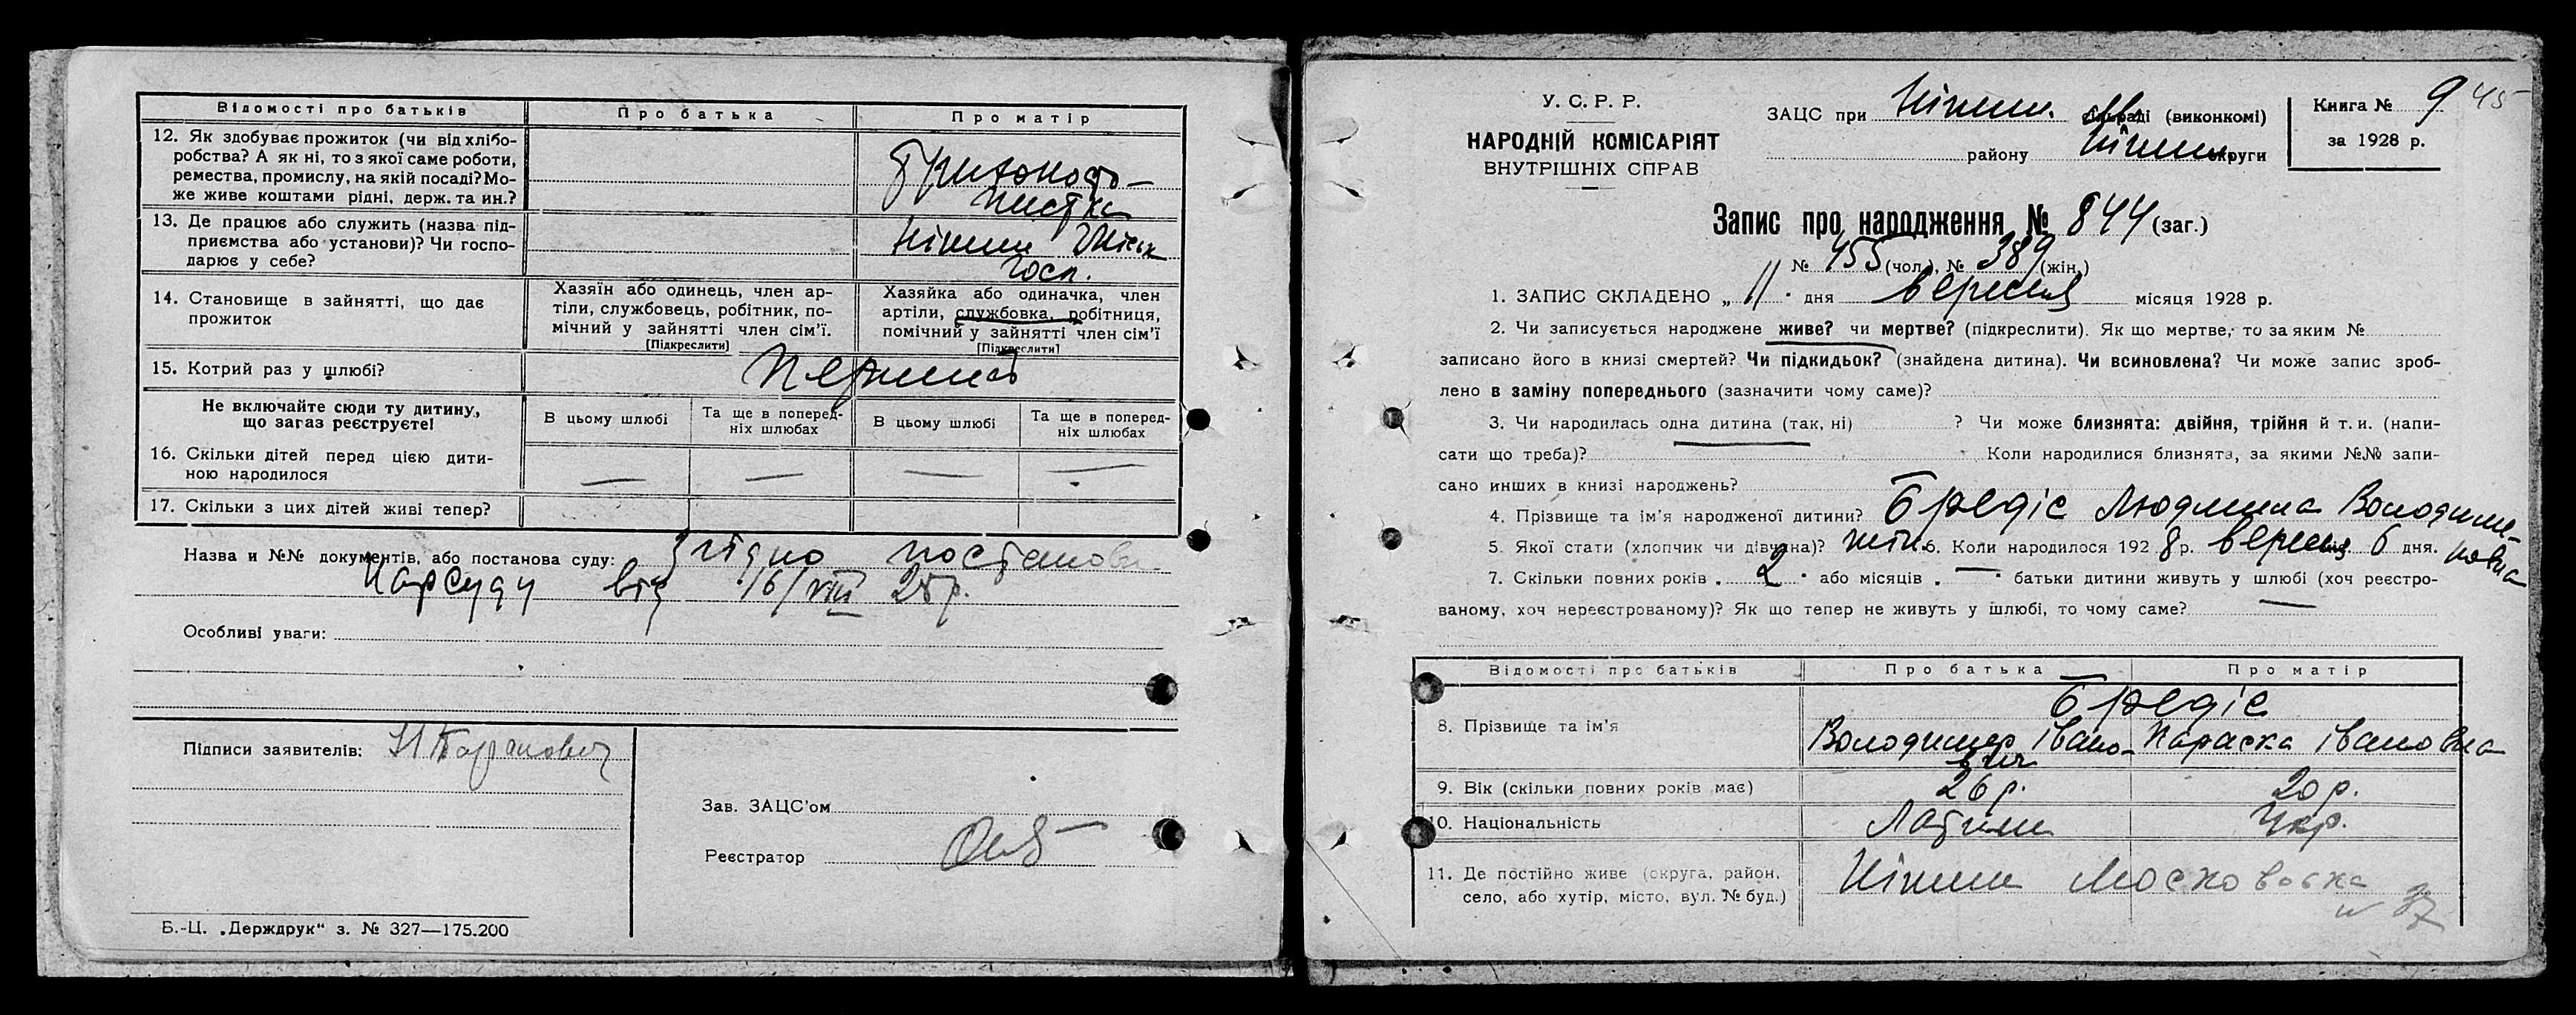 Відомості про батьків Про батька Про матір
12. Як здобуває прожиток (чи від хлібо-
робства? А як ні, то з якої саме роботи,
ремества, промислу, на якій посаді? Мо-
же живе коштами рідні, держ. та ин.?
Трикото-
жистка
13. Де працює або служить (назва під-
приємства або установи)? Чи госпо-
дарює у себе?
Ніжин
госп.
14. Становище в зайнятті, що дає
прожиток
Хазяїн або одинець, член ар-
тіли, службовець, робітник, по-
мічний у зайнятті член сім'ї.
[Підкреслити]
Хазяйка або одиначка, член
артіли, службовка, робітниця,
помічний у зайнятті член сім'ї
[Підкреслити]
15. Котрий раз у шлюбі? Перший
Не включайте сюди ту дитину,
що загаз реєструєте!
В цьому шлюбі
Та ще в поперед-
ніх шлюбах
В цьому шлюбі
Та ще в поперед-
ніх шлюбах
16. Скільки дітей перед цією дити-
ною народилося — — — —
17. Скільки з цих дітей живі тепер?
Назва и №№ документів, або постанова суду: Згідно постанови
Нарсуду від 16/VIII 28р.
Особливі уваги:
Підписи заявителів:
Зав. ЗАЦС'ом
Реєстратор
Б.-Ц. „Держдрук“ з. № 327—175.200
У. С. Р. Р.
НАРОДНІЙ КОМІСАРІЯТ
ВНУТРІШНІХ СПРАВ
ЗАЦС при Ніжин. сільраді (виконкомі)
району Ніжин округи
Книга № 9 45
за 1928 р.
Запис про народження № 844 (заг.)
№ 455 (чол.), № 389 (жін.)
1. ЗАПИС СКЛАДЕНО „ 11 " дня вересня місяця 1928 р.
2. Чи записується народжене живе? чи мертве? (підкреслити). Як що мертве, то за яким №
записано його в книзі смертей? Чи підкидьок? (знайдена дитина). Чи всиновлена? Чи може запис зроб-
лено в заміну попереднього (зазначити чому саме)?
3. Чи народилась одна дитина (так, ні) ? Чи може близнята: двійня, трійня й т. и. (напи-
сати що треба)? Коли народилися близнята, за якими №№ запи-
сано инших в книзі народжень?
4. Прізвище та ім'я народженої дитини? Бредіс Людмила Володими-
ровна
5. Якої стати (хлопчик чи дівчина)? жін. 6. Коли народилося 192 8 р. вересня 6 дня.
7. Скільки повних років „ 2 " або місяців „ — " батьки дитини живуть у шлюбі (хоч реєстро-
ваному, хоч нереєстрованому)? Як що тепер не живуть у шлюбі, то чому саме? —
Відомості про батьків Про батька Про матір
Бредіс
8. Прізвище та ім'я Володимир Івано- Параска Івановна
вич
9. Вік (скільки повних років має) 26 р. 20 р.
10. Національність Латиш Укр.
11. Де постійно живе (округа, район,
село, або хутір, місто, вул. № буд.)
Ніжин Московська
№ 37